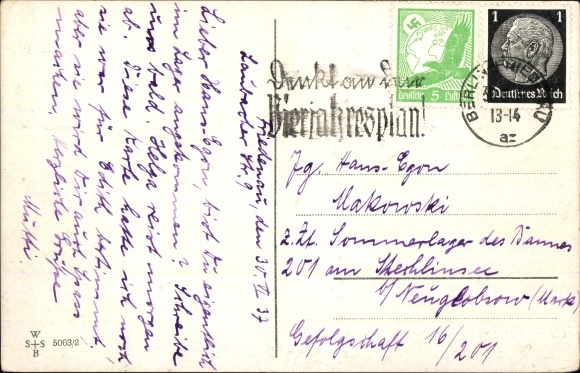 Friedenau, den 30. VI 37
Laubacher Str. 9
Lieber Hans-Egon, bist Du eigentlich
im Lager angekommen? Schreibe
uns bald. Helga reist morgen
ab. Diese Karte hatte ich noch,
sie war für Edith bestimmt,
aber sie wird Dir auch Spass
machen. Herzliche Grüße
Mutti
W
S+S
B
5063/2
Denkt an den
Vierjahresplan!
Deutsche
5
Luftpost
1
1
Deutsches Reich
BERLIN-FRIEDENAU
13-14
az
Jg. Hans-Egon
Makowski
z. Zt. Sommerlager des Bannes
201 am Stechlinsee
b/ Neuglobsow (Mark)
Gefolgschaft 16/201